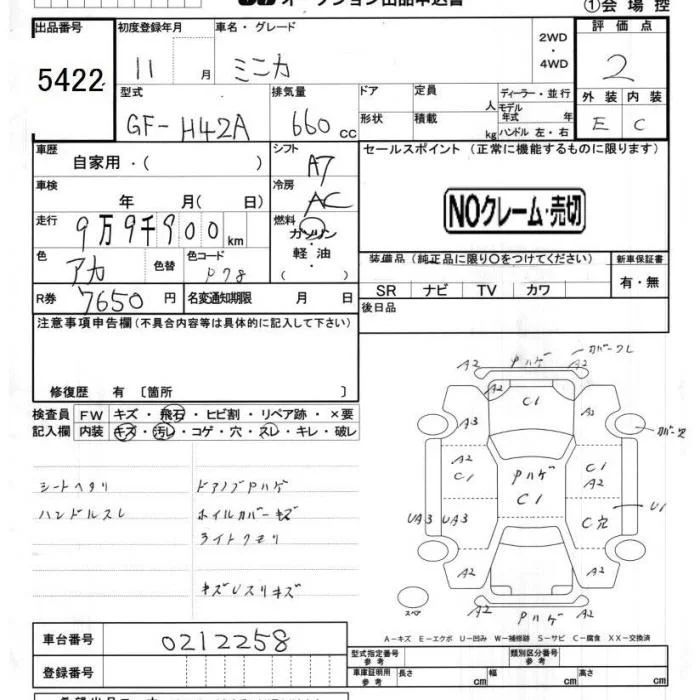 オークション出品申込書
①会場控
出品番号 初度登録年月 車名・グレード 評価点
5422 11 月 ミニカ 2WD・4WD 2
型式 排気量 ドア 定員 人 ディーラー・並行 外装 内装
GF-H42A 660 cc 形状 積載 kg モデル年式 年 ハンドル 左・右 E C
車歴 自家用・( ) シフト A7 セールスポイント(正常に機能するものに限ります)
車検 年 月( 日) 冷房 AC
NOクレーム・売切
走行 9万9千900km 燃料 ガソリン・軽油・( )
色 アカ 色替 色コード P78
装備品(純正品に限り○をつけてください) 新車保証書
SR ナビ TV カワ 有・無
R券 7650円 名変通知期限 月 日
後日品
注意事項申告欄(不具合内容等は具体的に記入して下さい)
修復歴 有〔箇所 〕
検査員 FW キズ・飛石・ヒビ割・リペア跡・×要
記入欄 内装 キズ・汚レ・コゲ・穴・スレ・キレ・破レ
シートヘタリ ドアノブPハゲ
ハンドルスレ ホイルカバーキズ
ライトクモリ
キズUスリキズ
A2 Pハゲ A2 カバークレ
A2 C1 A2
A3
A2 C1 C1 A2
Pハゲ C1
UA3 UA3 C穴 U1
A2 A2
スペア A2 Pハゲ A2
A-キズ E-エクボ U-凹み W-補修跡 S-サビ C-腐食 XX-交換済
車台番号 0212258
登録番号
型式指定番号 参考 類別区分番号 参考
車庫証明用 参考 長さ cm 幅 cm 高さ cm